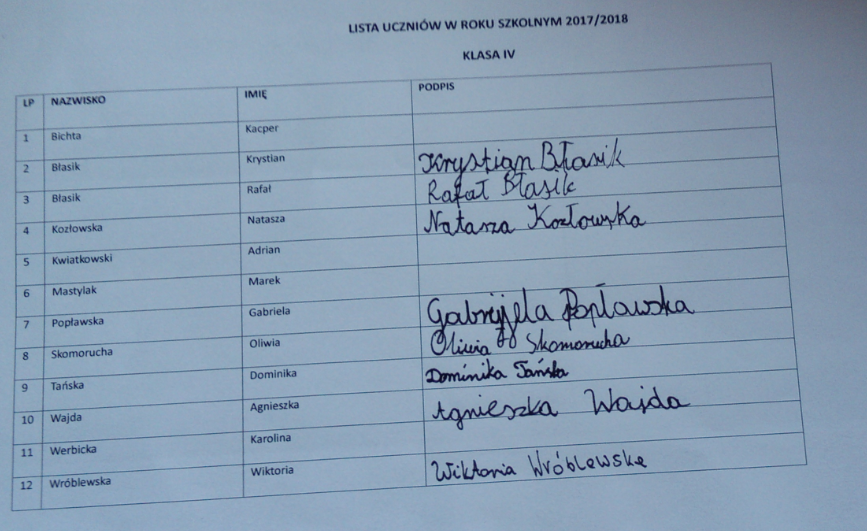 LISTA UCZNIÓW W ROKU SZKOLNYM 2017/2018
KLASA IV
LP NAZWISKO IMIĘ PODPIS
1 Bichta Kacper
2 Błasik Krystian Krystian Błasik
3 Błasik Rafał Rafał Błasik
4 Kozłowska Natasza Natasza Kozłowska
5 Kwiatkowski Adrian
6 Mastylak Marek
7 Popławska Gabriela Gabryjela Popławska
8 Skomorucha Oliwia Oliwia Skomorucha
9 Tańska Dominika Dominika Tańska
10 Wajda Agnieszka Agnieszka Wajda
11 Werbicka Karolina
12 Wróblewska Wiktoria Wiktoria Wróblewska